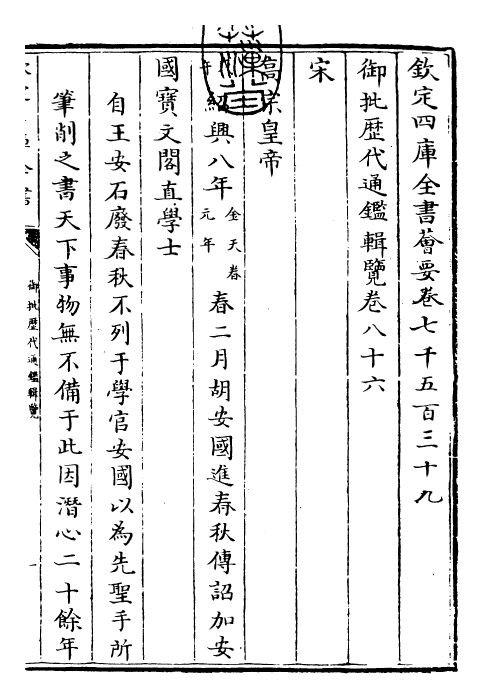 欽定四庫全書薈要卷七千五百三十九
御批歷代通鑑輯覽卷八十六
宋
高宗皇帝
紹興八年金天眷元年春二月胡安國進春秋傳詔加安
國寶文閣直學士
自王安石廢春秋不列于學官安國以為先聖手所
筆削之書天下事物無不備于此因潛心二十餘年
御批歷代通鑑輯覽